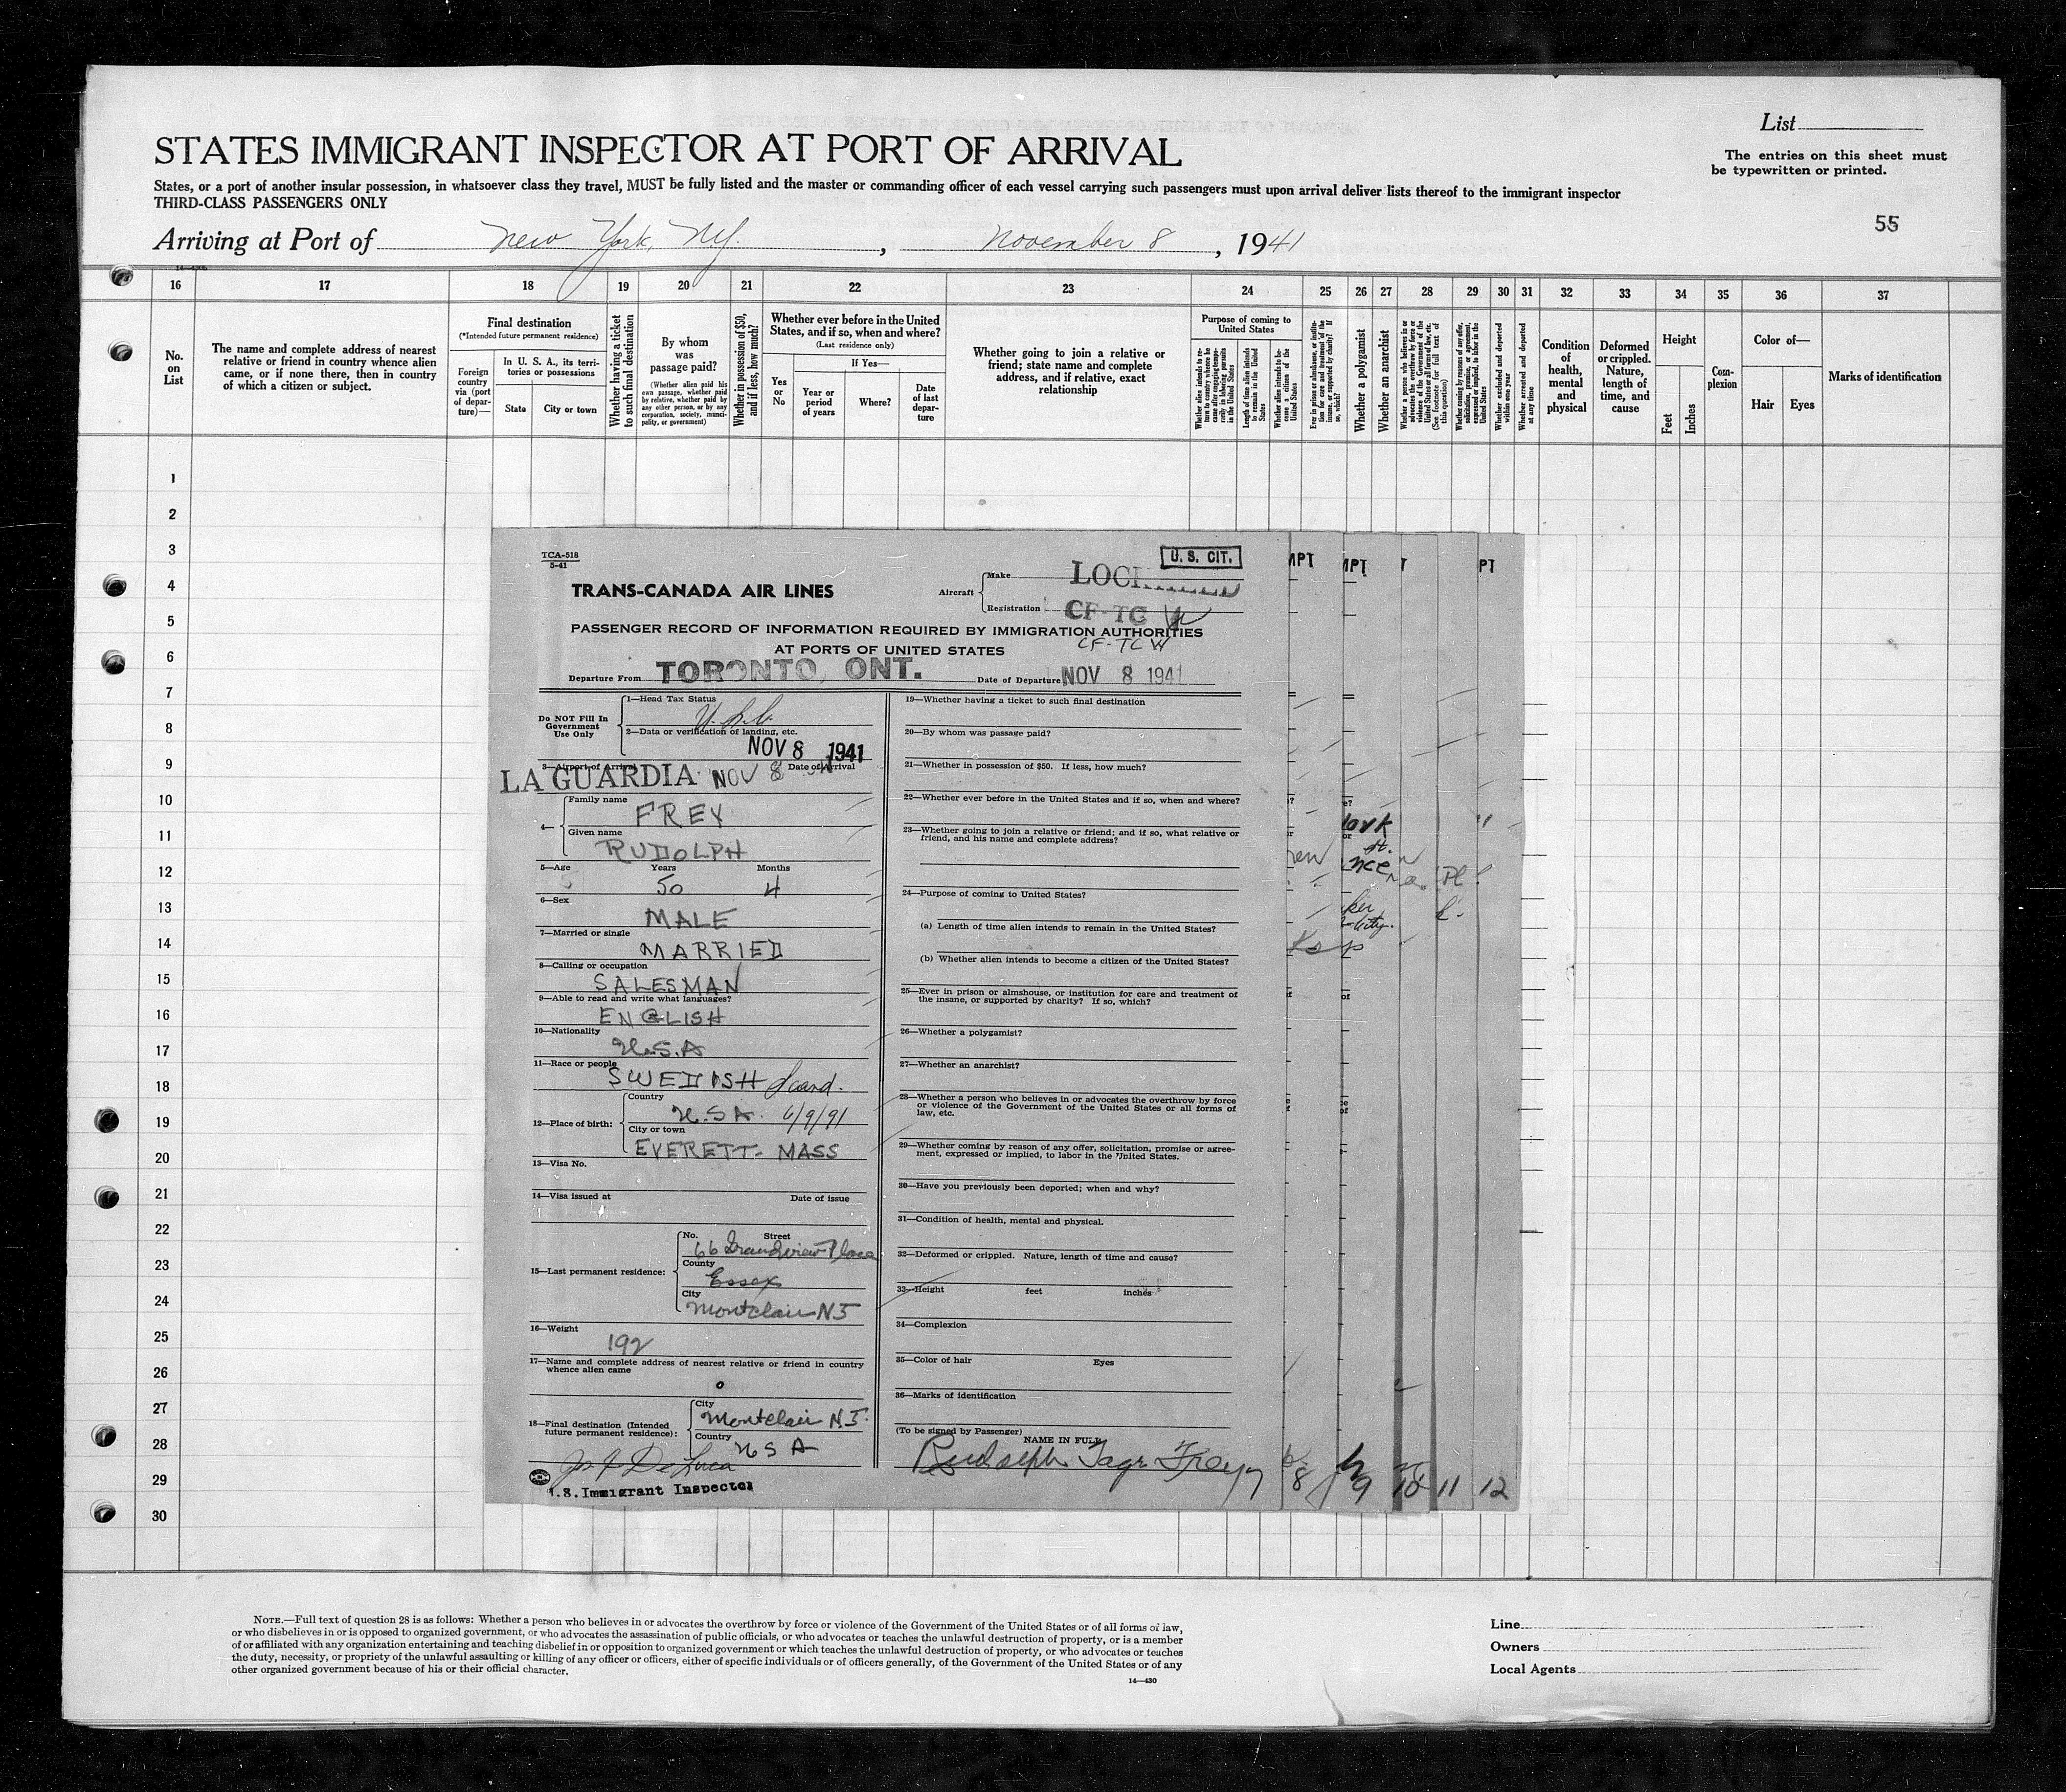 List
STATES IMMIGRANT INSPECTOR AT PORT OF ARRIVAL
The entries on this sheet must
be typewritten or printed.
States, or a port of another insular possession, in whatsoever class they travel, MUST be fully listed and the master or commanding officer of each vessel carrying such passengers must upon arrival deliver lists thereof to the immigrant inspector
THIRD-CLASS PASSENGERS ONLY
55
Arriving at Port of New York, NY. , November 8 , 1941
16 17 18 19 20 21 22 23 24 25 26 27 28 29 30 31 32 33 34 35 36 37
No.
on
List
The name and complete address of nearest
relative or friend in country whence alien
came, or if none there, then in country
of which a citizen or subject.
Final destination
(*Intended future permanent residence)
Foreign
country
via (port
of depar-
ture)—
In U. S. A., its terri-
tories or possessions
State
City or town
Whether having a ticket
to such final destination
By whom
was
passage paid?
(Whether alien paid his
own passage, whether paid
by relative, whether paid by
any other person, or by any
corporation, society, munici-
pality, or government)
Whether in possession of $50,
and if less, how much?
Whether ever before in the United
States, and if so, when and where?
(Last residence only)
Yes
or
No
If Yes—
Year or
period
of years
Where?
Date
of last
depar-
ture
Whether going to join a relative or
friend; state name and complete
address, and if relative, exact
relationship
Purpose of coming to
United States
Whether alien intends to re-
turn to country whence he
came after engaging tempo-
rarily in laboring pursuits
in the United States
Length of time alien intends
to remain in the United
States
Whether alien intends to be-
come a citizen of the
United States
Ever in prison or almshouse, or institu-
tion for care and treatment of the
insane, or supported by charity? If
so, which?
Whether a polygamist
Whether an anarchist
Whether a person who believes in or
advocates the overthrow by force or
violence of the Government of the
United States or all forms of law, etc.
(See footnote for full text of
this question)
Whether coming by reason of any offer,
solicitation, promise, or agreement,
expressed or implied, to labor in the
United States
Whether excluded and deported
within one year
Whether arrested and deported
at any time
Condition
of
health,
mental
and
physical
Deformed
or crippled.
Nature,
length of
time, and
cause
Height
Feet
Inches
Com-
plexion
Color of—
Hair
Eyes
Marks of identification
1
2
3
4
5
6
7
8
9
10
11
12
13
14
15
16
17
18
19
20
21
22
23
24
25
26
27
28
29
30
TCA-518
5-41
U. S. CIT.
TRANS-CANADA AIR LINES
Aircraft
Make LOCKHEED
Registration CF-TC W
CF-TCW
PASSENGER RECORD OF INFORMATION REQUIRED BY IMMIGRATION AUTHORITIES
AT PORTS OF UNITED STATES
Departure From TORONTO, ONT. Date of Departure NOV 8 1941
Do NOT Fill In
Government
Use Only
1—Head Tax Status
2—Data or verification of landing, etc.
NOV 8 1941
3—Airport of Arrival Date of Arrival
LA GUARDIA NOV 8
4—
Family name
FREY
Given name
RUDOLPH
5—Age Years Months
50 4
6—Sex
MALE
7—Married or single
MARRIED
8—Calling or occupation
SALESMAN
9—Able to read and write what languages?
ENGLISH
10—Nationality
U.S.A
11—Race or people
SWEDISH Scand.
12—Place of birth:
Country
U.S.A. 6/9/91
City or town
EVERETT- MASS
13—Visa No.
14—Visa issued at Date of issue
15—Last permanent residence:
No. Street
66 Grandview Place
County
Essex
City
Montclair NJ
16—Weight
192
17—Name and complete address of nearest relative or friend in country
whence alien came
18—Final destination (Intended
future permanent residence):
City
Montclair N.J.
Country
U S A
Jos F De Luca
U.S. Immigrant Inspector
19—Whether having a ticket to such final destination
20—By whom was passage paid?
21—Whether in possession of $50. If less, how much?
22—Whether ever before in the United States and if so, when and where?
23—Whether going to join a relative or friend; and if so, what relative or
friend, and his name and complete address?
24—Purpose of coming to United States?
(a) Length of time alien intends to remain in the United States?
(b) Whether alien intends to become a citizen of the United States?
25—Ever in prison or almshouse, or institution for care and treatment of
the insane, or supported by charity? If so, which?
26—Whether a polygamist?
27—Whether an anarchist?
28—Whether a person who believes in or advocates the overthrow by force
or violence of the Government of the United States or all forms of
law, etc.
29—Whether coming by reason of any offer, solicitation, promise or agree-
ment, expressed or implied, to labor in the United States.
30—Have you previously been deported; when and why?
31—Condition of health, mental and physical.
32—Deformed or crippled. Nature, length of time and cause?
33—Height feet inches
34—Complexion
35—Color of hair Eyes
36—Marks of identification
(To be signed by Passenger)
NAME IN FULL
Rudolph Tage Frey
7 8 9 10 11 12
NOTE.—Full text of question 28 is as follows: Whether a person who believes in or advocates the overthrow by force or violence of the Government of the United States or of all forms of law,
or who disbelieves in or is opposed to organized government, or who advocates the assassination of public officials, or who advocates or teaches the unlawful destruction of property, or is a member
of or affiliated with any organization entertaining and teaching disbelief in or opposition to organized government or which teaches the unlawful destruction of property, or who advocates or teaches
the duty, necessity, or propriety of the unlawful assaulting or killing of any officer or officers, either of specific individuals or of officers generally, of the Government of the United States or of any
other organized government because of his or their official character.
14—430
Line
Owners
Local Agents